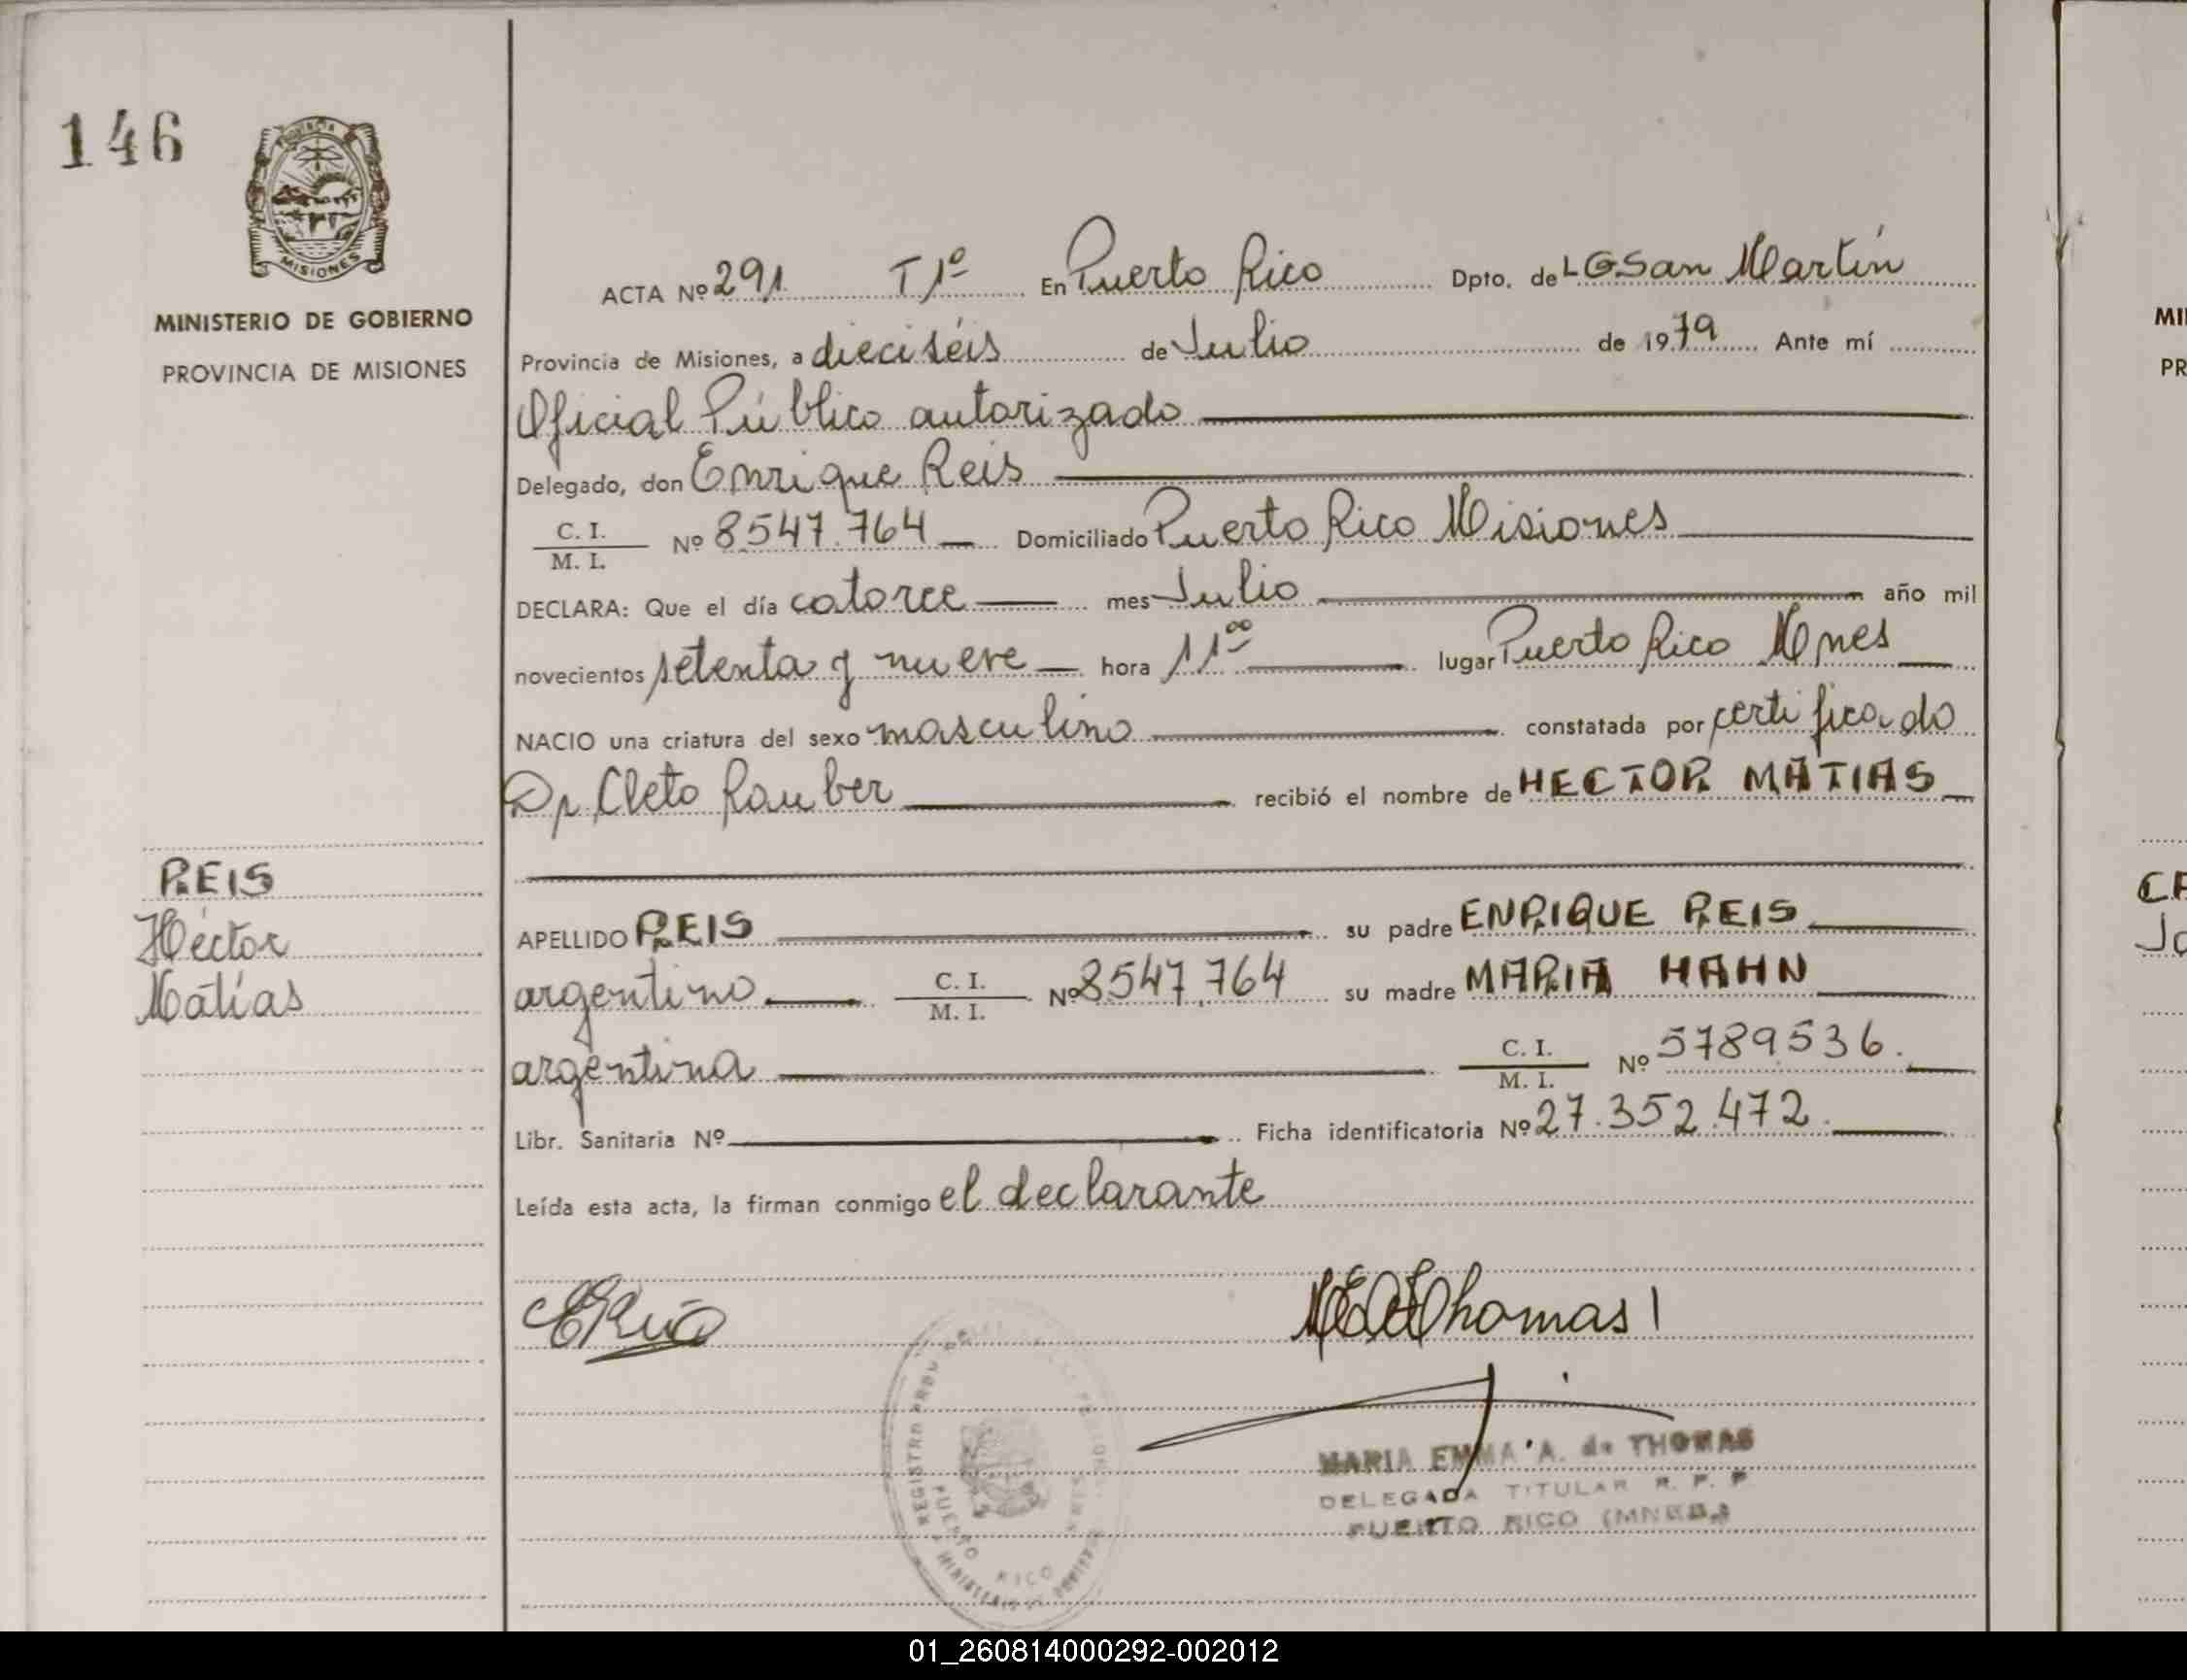 146
PROVINCIA
MISIONES
MINISTERIO DE GOBIERNO
PROVINCIA DE MISIONES
ACTA Nº 291 T 1º En Puerto Rico Dpto. de L G San Martín
Provincia de Misiones, a dieciséis de Julio de 1979 Ante mí
Oficial Público autorizado
Delegado, don Enrique Reis
C. I.
M. I. Nº 8547.764 Domiciliado Puerto Rico Misiones
DECLARA: Que el día catorce mes Julio año mil
novecientos setenta y nueve hora 11⁰⁰ lugar Puerto Rico Mnes
NACIO una criatura del sexo masculino constatada por certificado
Dr Cleto Rauber recibió el nombre de HECTOR MATIAS
REIS
Héctor
Matías
APELLIDO REIS su padre ENRIQUE REIS
argentino C. I.
M. I. Nº 8547.764 su madre MARIA HAHN
argentina C. I.
M. I. Nº 5789536.
Libr. Sanitaria Nº Ficha identificatoria Nº 27.352.472.
Leída esta acta, la firman conmigo el declarante
Thomas
MARIA EMMA A. de THOMAS
DELEGADA TITULAR R. P. P
PUERTO RICO (MNES.)
PUERTO RICO
MI
PR
01_260814000292-002012